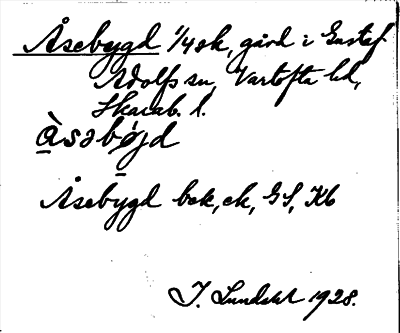 Åsebygd 1/4 sk, gård i Gustaf
Adolfs sn, Vartofta hd,
Skarab. l.
àsəbøjd
Åsebygd bek, ek, GS, Kb
J. Lundahl 1928.